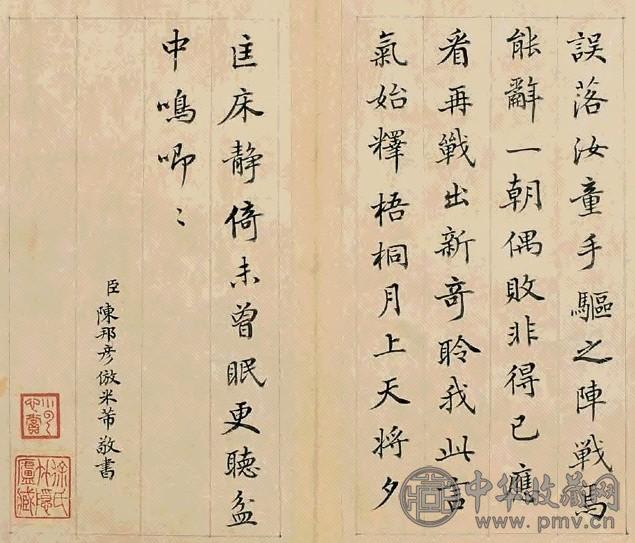 誤落汝童手驅之陣戰焉
能辭一朝偶敗非得已應
看再戰出新奇聆我此言
氣始釋梧桐月上天將夕
匡床静倚未曾眠更聽盆
中鳴唧〻
臣陳邦彦倣米芾敬書
徐氏
盧藏
中华收藏网
www.pmv.cn